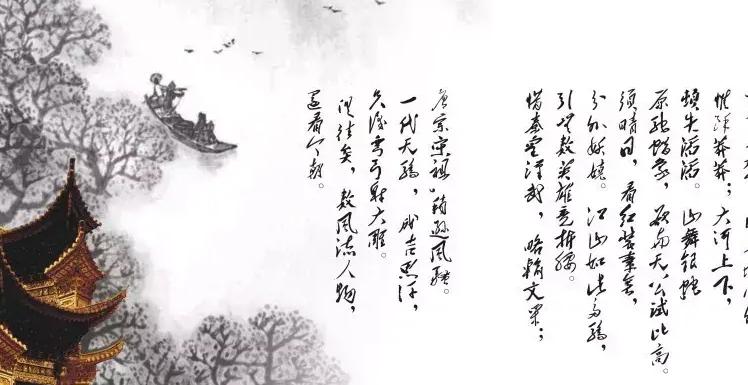 惟馀莽莽；大河上下，
顿失滔滔。山舞银蛇
原驰蜡象，欲与天公试比高。
须晴日，看红装素裹，
分外妖娆。江山如此多娇，
引无数英雄竞折腰。
惜秦皇汉武，略输文采；
唐宗宋祖，稍逊风骚。
一代天骄，成吉思汗，
只识弯弓射大雕。
俱往矣，数风流人物，
还看今朝。